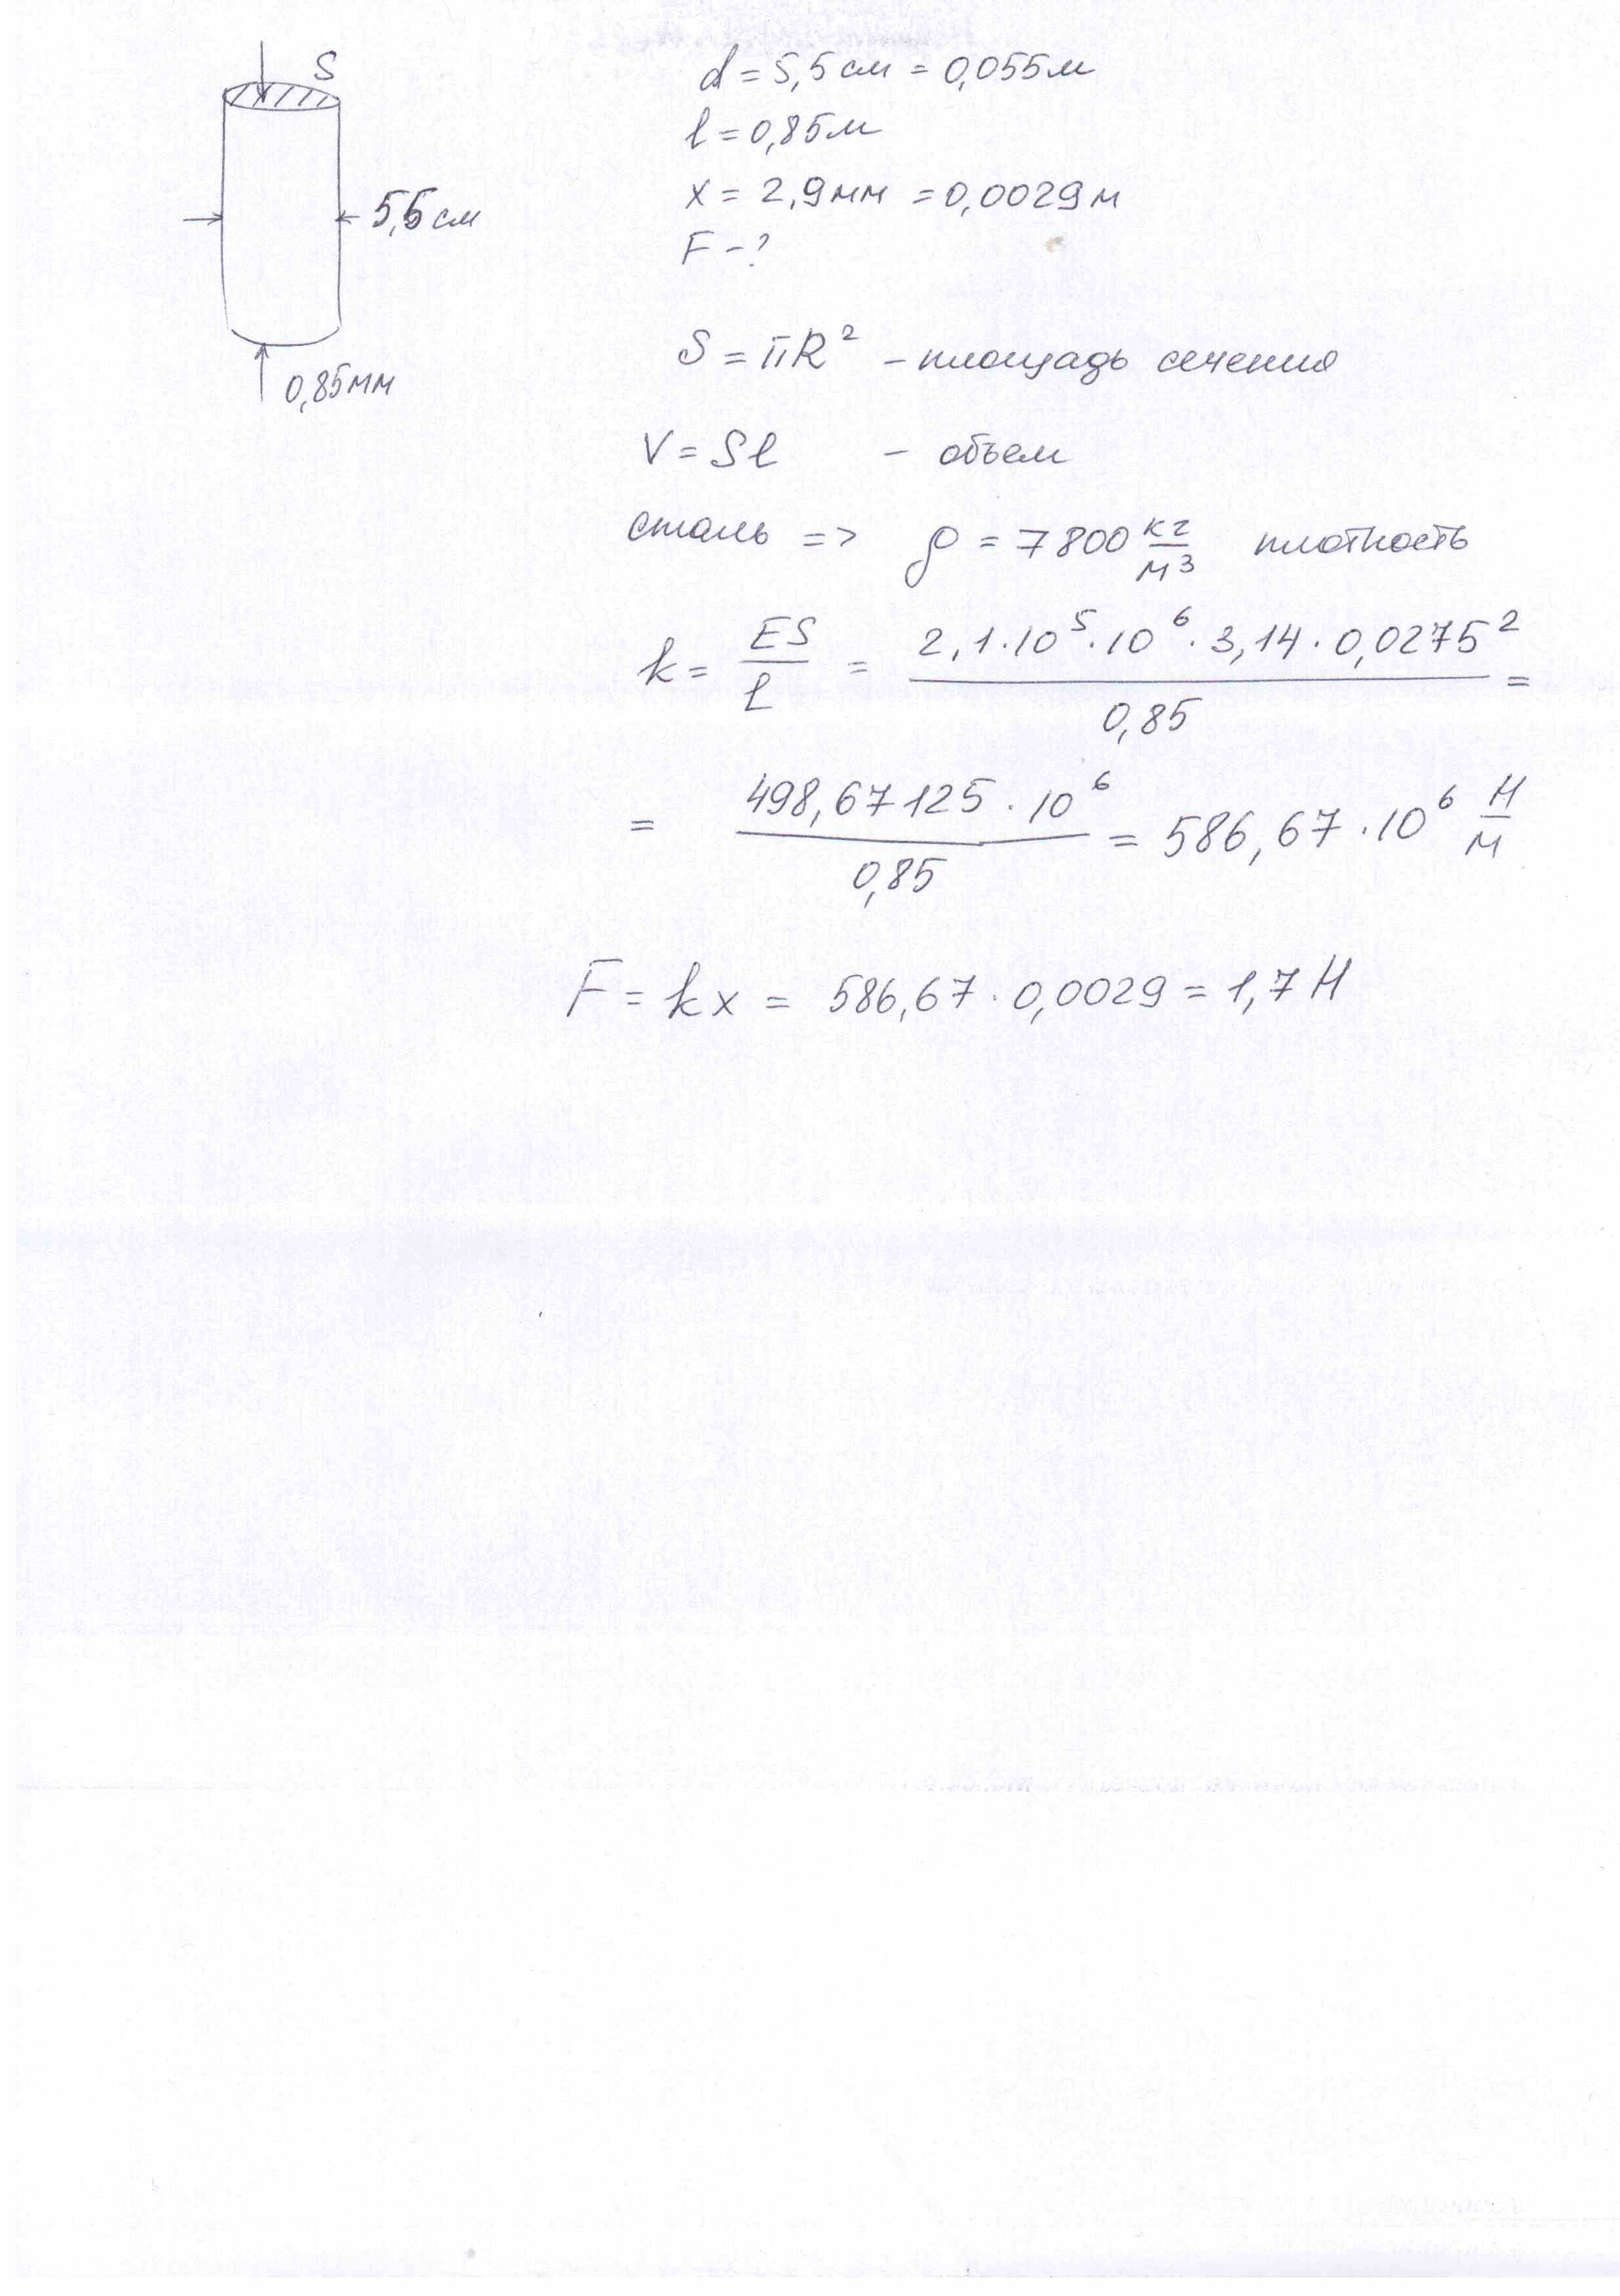 S
5,5 см
0,85 мм
d = 5,5 см = 0,055 м
l = 0,85 м
x = 2,9 мм = 0,0029 м
F - ?
S = πR² - площадь сечения
V = Sl - объем
сталь => ρ = 7800 кг/м³ плотность
k = ES/L = 2,1·10⁵·10⁶·3,14·0,0275²/0,85 =
= 498,67125·10⁶/0,85 = 586,67·10⁶ Н/м
F = kx = 586,67·0,0029 = 1,7 Н